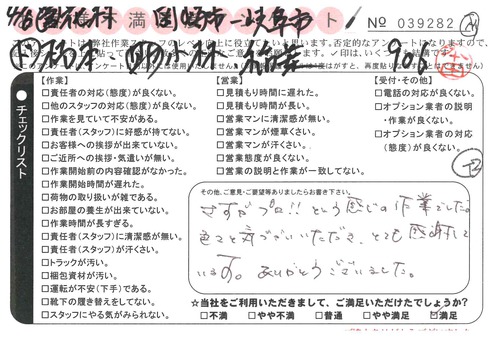 満 ト
No 039282
岡崎市→岐阜市
小林
チェックリスト
【作業】
□責任者の対応(態度)が良くない。
□他のスタッフの対応(態度)が良くない。
□作業を見ていて不安がある。
□責任者(スタッフ)に好感が持てない。
□お客様への挨拶が出来ていない。
□ご近所への挨拶・気遣いが無い。
□作業開始前の内容確認がなかった。
□作業開始時間が遅れた。
□荷物の取り扱いが雑である。
□お部屋の養生が出来ていない。
□作業時間が長すぎる。
□責任者(スタッフ)に清潔感が無い。
□責任者(スタッフ)が汗くさい。
□トラックが汚い。
□梱包資材が汚い。
□運転が不安(下手)である。
□靴下の履き替えをしてない。
□スタッフにやる気がみられない。
【営業】
□見積もり時間に遅れた。
□見積もり時間が長い。
□営業マンに清潔感が無い。
□営業マンが煙草くさい。
□営業マンが汗くさい。
□営業態度が良くない。
□営業の説明と作業が一致してない。
【受付・その他】
□電話の対応が良くない。
□オプション業者の説明
・作業が良くない。
□オプション業者の対応
(態度)が良くない。
その他、ご意見・ご要望等ありましたらお書き下さい。
さすがプロ!!という感じの作業でした。
色々と気づかいいただき、とても感謝して
います。ありがとうございました。
☆当社をご利用いただきまして、ご満足いただけたでしょうか?
□不満 □やや不満 □普通 □やや満足 ☑満足